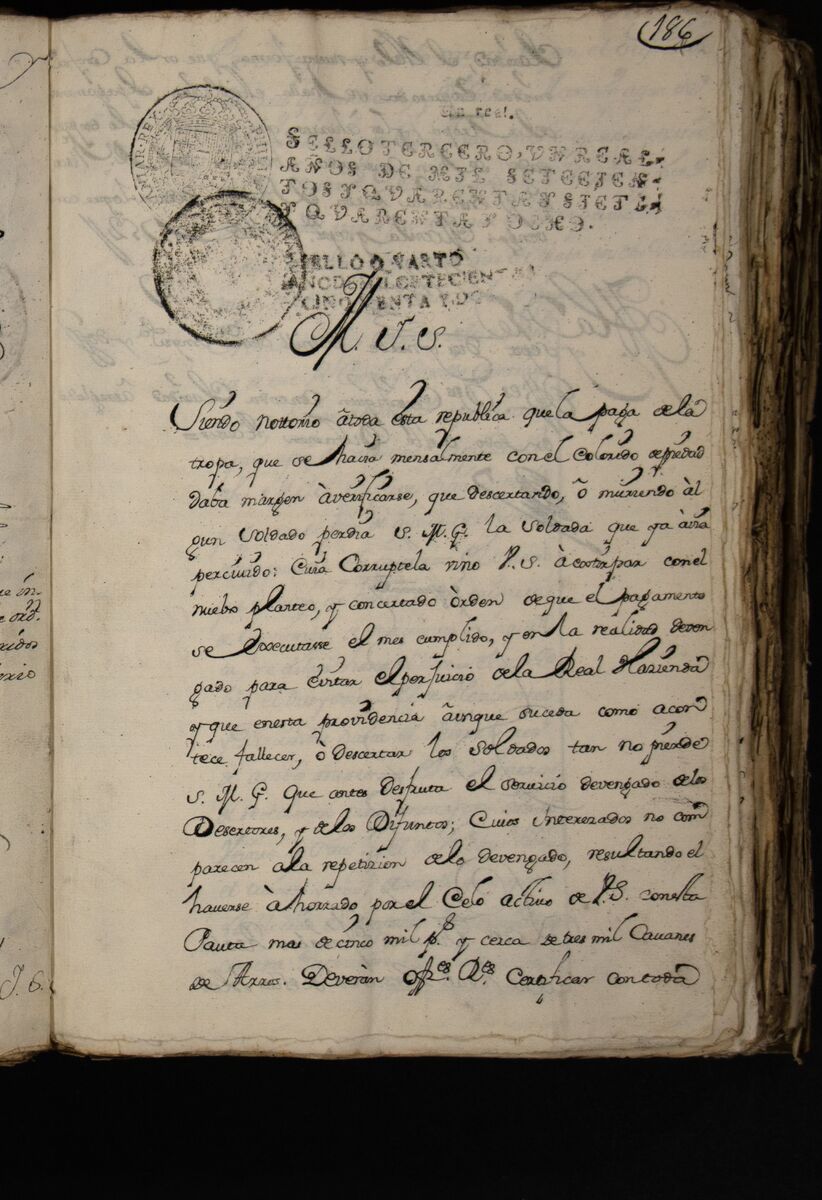 186
Un real.
SELLO TERCERO, VN REAL,
AÑOS DE MIL SETECIEN-
TOS Y QVARENTA Y SIETE,
Y QVARENTA Y OCHO.
SELLO QVARTO
AÑO DE MIL SETECIENTOS
CINQVENTA Y DOS
M. I. S.
Siendo nottorio â toda esta republica que la paga de la
tropa, que se hacia mensalmente con el colorido de piedad
daba margen à verificarse, que descertando, ô muriendo àl
gun soldado perdia S. M. G. la soldada que ya àvia
percivido: Cuia Corruptela vino V. S. à extirpar con el
nuebo planteo, y concertado òrden de que el pagamento
se executasse el mes cumplido, y en la realidad deven
gado para evitar el perjuicio de la Real Hazienda
y que en esta providencia âunque suceda como acon
tece fallecer, ò descertar los soldados tan no pierde
S. M. G. que antes desfruta el servicio devengado de los
Desertores, y de los Difuntos; Cuios interezados no com
parecen a la repetizion de lo devengado, resultando el
haverse àhorrado por el Celo activo de V. S. con esta
Pauta mas de cinco mil p.s y cerca de tres mil Cavanes
de Arros. Deveràn offi.es R.es Certificar con toda